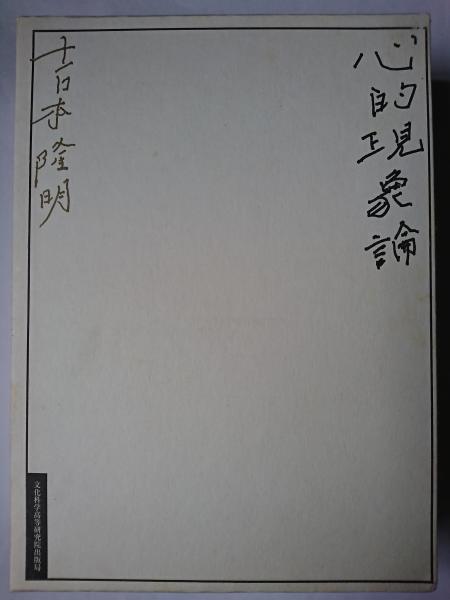 心的現象論
吉本隆明
文化科学高等研究院出版局